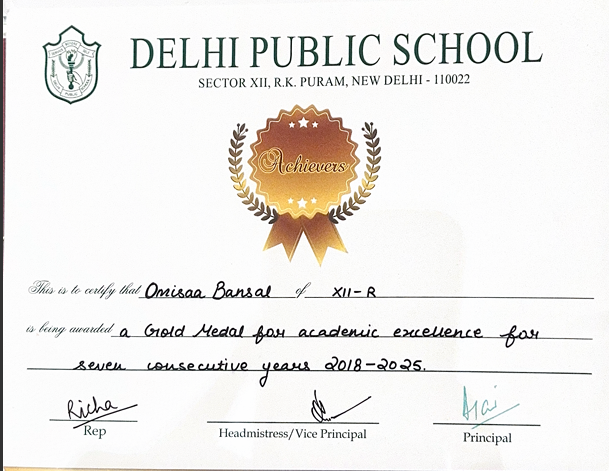 DELHI PUBLIC SCHOOL
SECTOR XII, R.K. PURAM, NEW DELHI - 110022
Achievers
This is to certify that Omisaa Bansal of XII-R
is being awarded a Gold Medal for academic excellence for
seven consecutive years 2018-2025.
Richa
Rep
Headmistress/Vice Principal
Principal